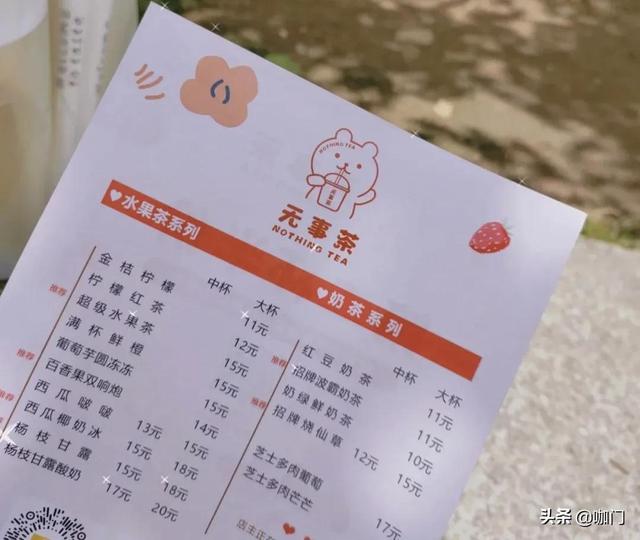 NOTHING TEA
无事茶
无事茶
NOTHING TEA
水果茶系列
中杯 大杯
金桔柠檬 11元
推荐 柠檬红茶 12元
超级水果茶 15元
满杯鲜橙 15元
推荐 葡萄芋圆冻冻 15元
百香果双响炮 14元
推荐 西瓜啵啵 13元 15元
西瓜椰奶冰 15元 18元
杨枝甘露 15元 18元
杨枝甘露酸奶 17元 20元
奶茶系列
中杯 大杯
红豆奶茶 11元
推荐 招牌波霸奶茶 11元
奶绿鲜奶茶 10元
推荐 招牌烧仙草 12元 15元
芝士多肉葡萄 17元
芝士多肉芒芒
店主正在
头条 @咖门